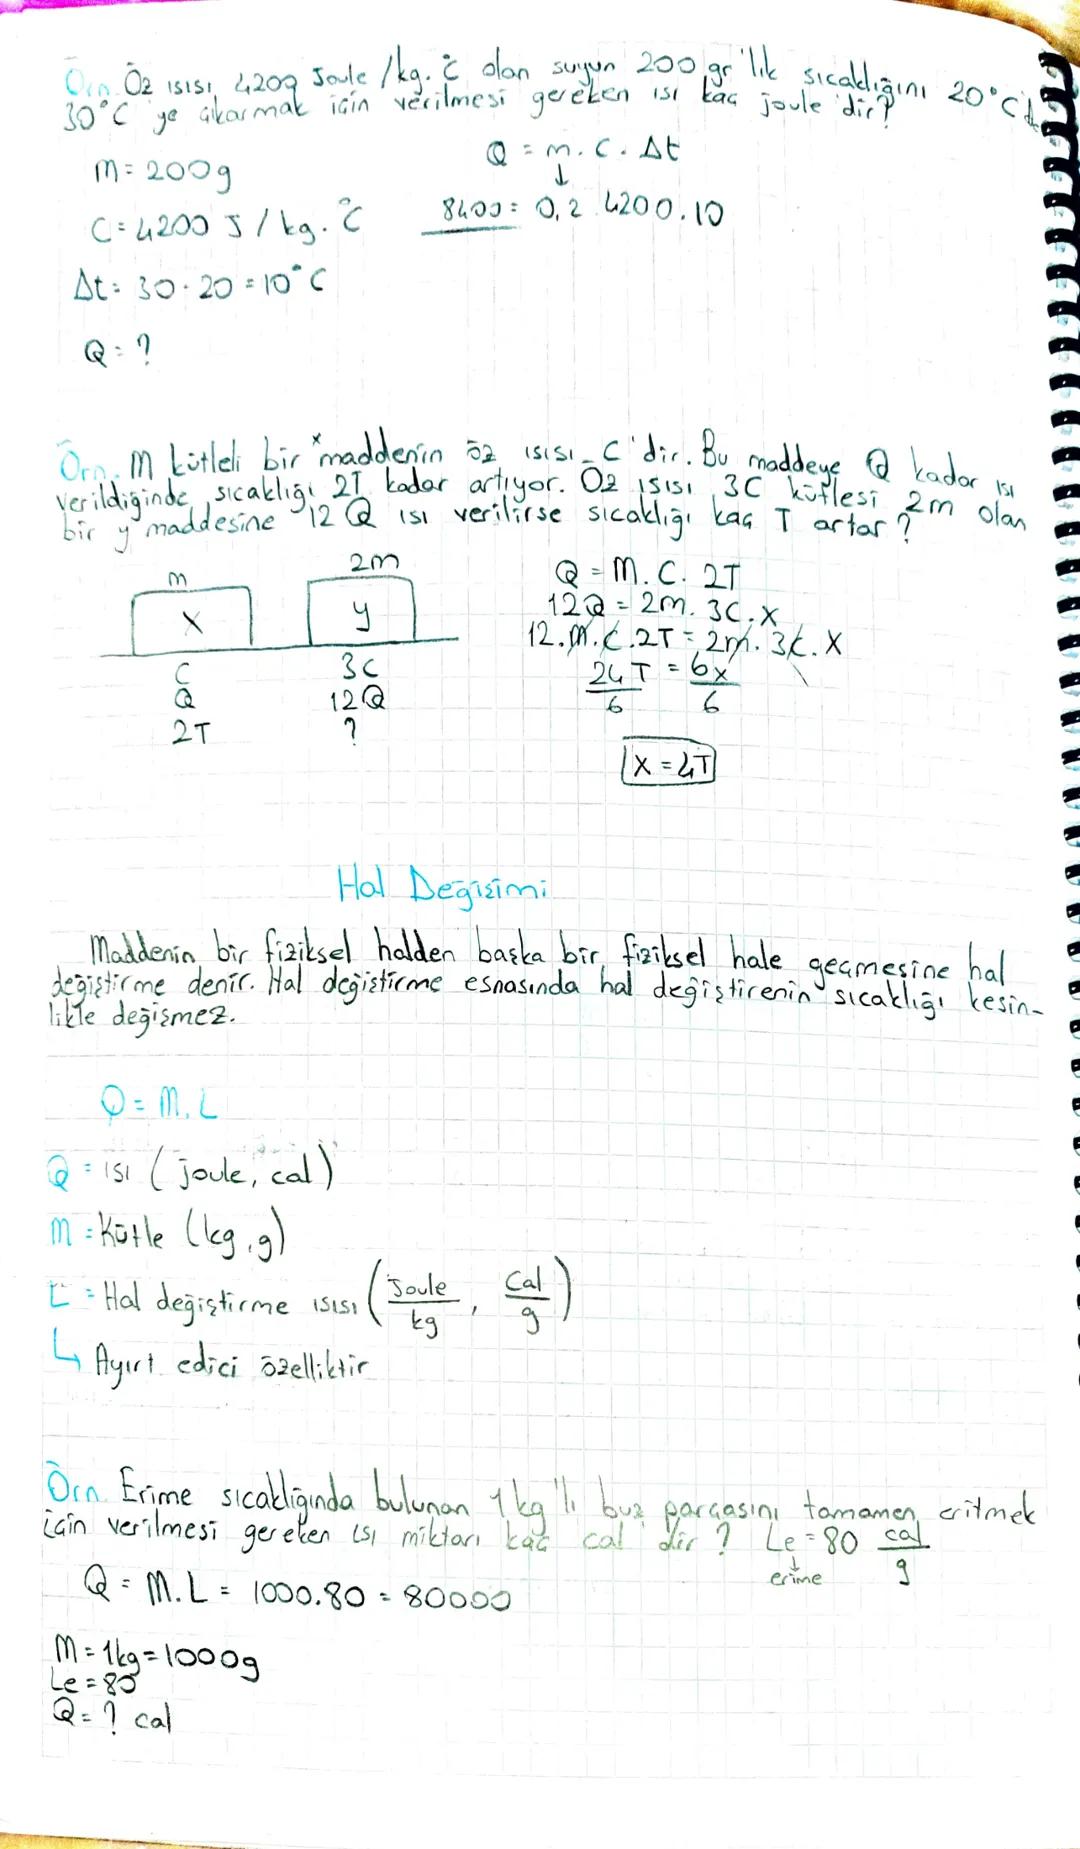 Örn. Öz ısısı 4200 Joule /kg.°C olan suyun 200 gr'lık sıcaklığını 20°C'd
30°C ye çıkarmak için verilmesi gereken ısı kaç joule'dir?
m = 200g
Q = m. C. Δt
C = 4200 J / kg. °C
8400 = 0,2 4200.10
Δt = 30-20 = 10°C
Q = ?
Örn. M kütleli bir x maddenin öz ısısı C'dir. Bu maddeye Q kadar ısı
verildiğinde sıcaklığı 2T kadar artıyor. Öz ısısı 3C kütlesi 2m olan
bir y maddesine 12 Q ısı verilirse sıcaklığı kaç T artar?
m 2m
x y
C 3C
Q 12Q
2T ?
Q = M. C. 2T
12Q = 2m. 3C. X
12.m.C.2T = 2m. 3C. X
24T = 6x
6 6
X = 4T
Hal Değişimi
Maddenin bir fiziksel halden başka bir fiziksel hale geçmesine hal
değiştirme denir. Hal değiştirme esnasında hal değiştirenin sıcaklığı kesin-
likle değişmez.
Q = M. L
Q = ısı (joule, cal)
M = Kütle (kg, g)
L = Hal değiştirme ısısı (Joule/kg, Cal/g)
↳ Ayırt edici özelliktir
Örn. Erime sıcaklığında bulunan 1 kg'lı buz parçasını tamamen eritmek
için verilmesi gereken ısı miktarı kaç cal dir? Le = 80 cal/g
erime
Q = M. L = 1000.80 = 80000
M = 1kg = 1000g
Le = 80
Q = ? cal